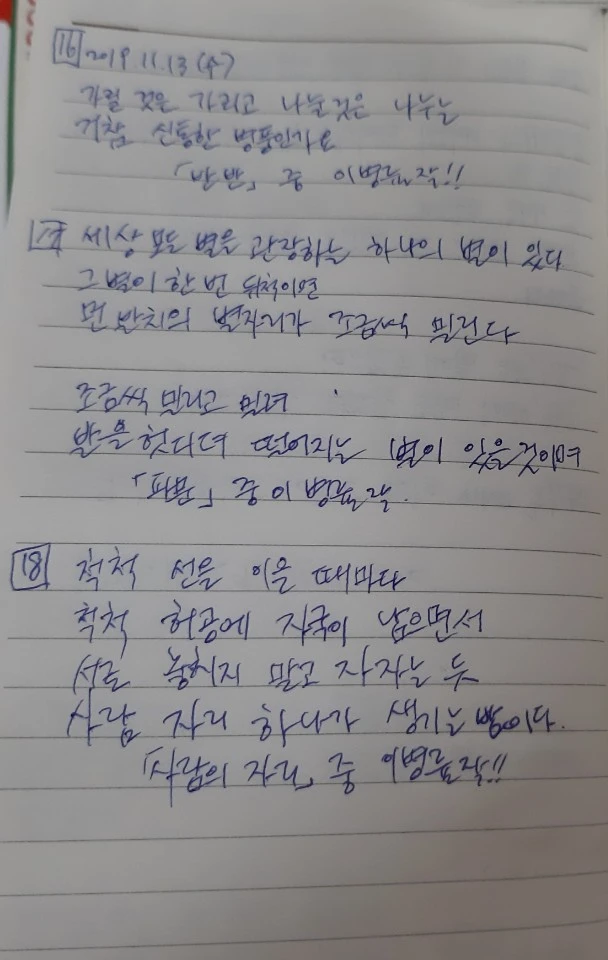 16 2019.11.13 (수)
가릴 것은 가리고 나눌 것은 나누는
거참 신통한 병풍인가요
「반반」 중 이병률 작!!
17 세상 모든 별을 관장하는 하나의 별이 있다
그 별이 한 번 뒤척이면
먼 반치의 별자리가 조금씩 밀린다
조금씩 밀리고 밀려
발을 헛디뎌 떨어지는 별이 있을 것이며
「파문」 중 이병률 작.
18 척척 선을 이을 때마다
척척 허공에 자국이 남으면서
서로 놓치지 말고 자자는 듯
사람 자리 하나가 생기는 밤이다.
「사람의 자리」 중 이병률 작!!